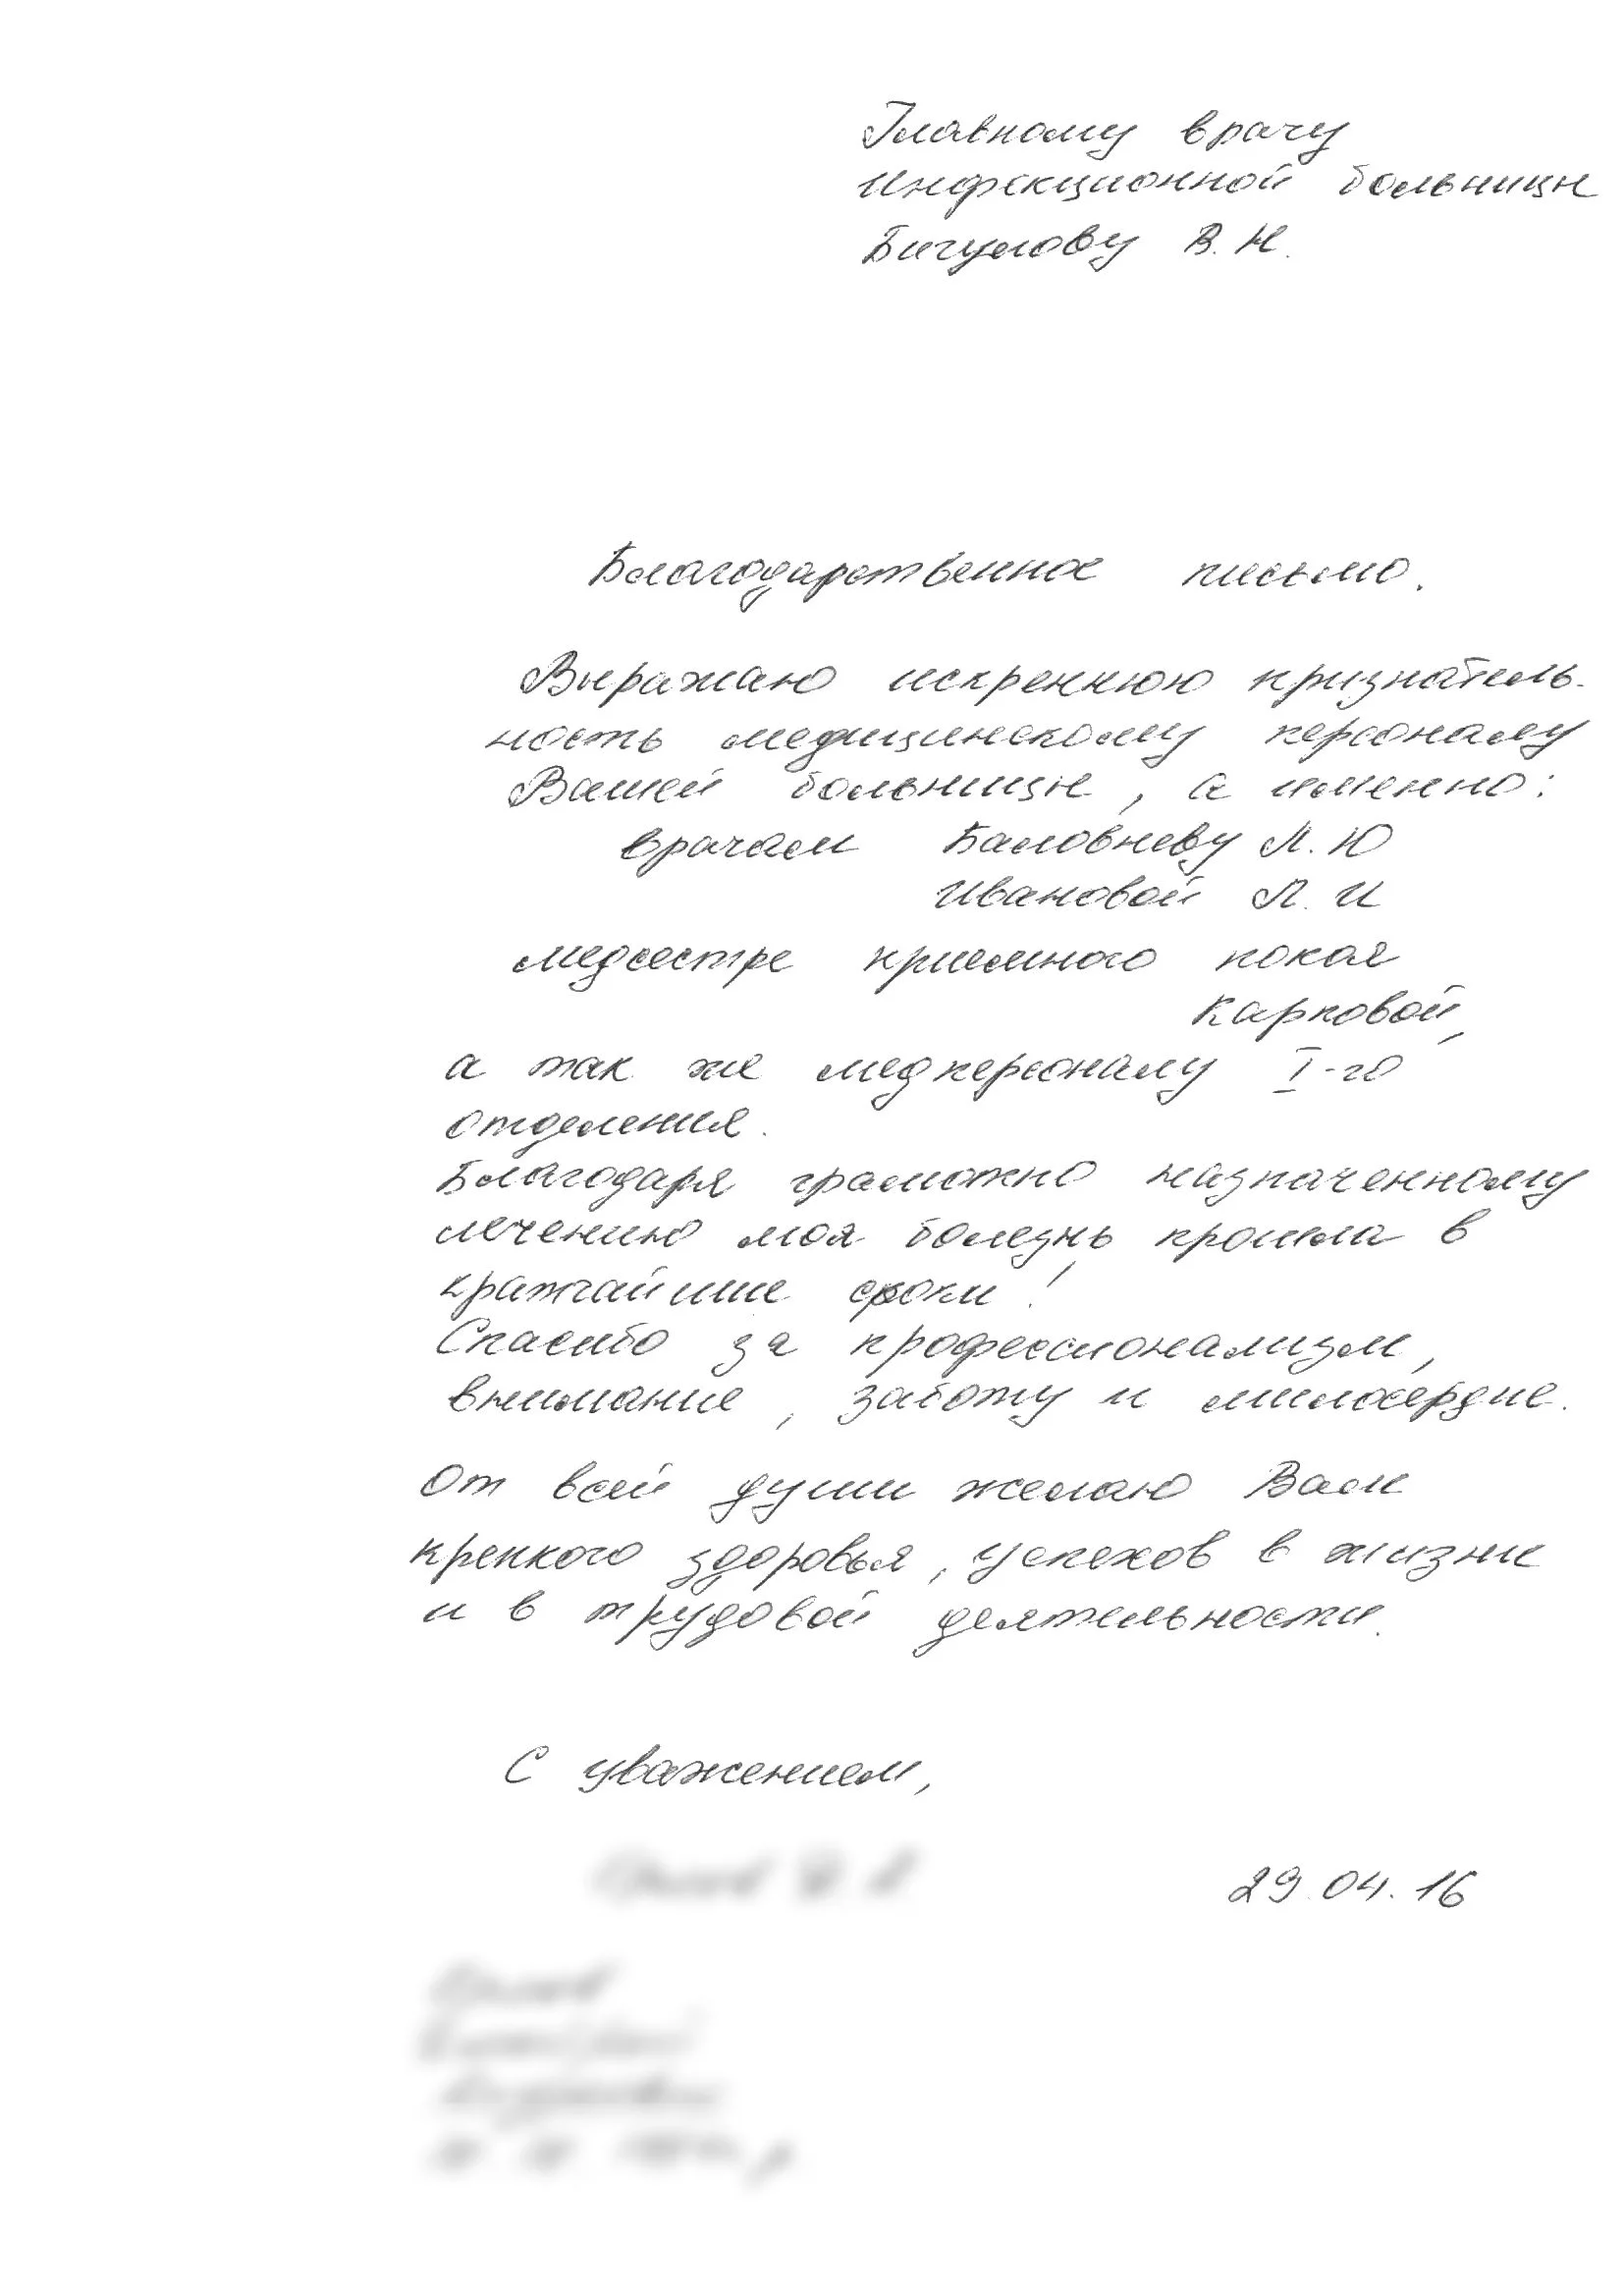 Главному врачу
инфекционной больницы
Бигулову В. Н.
Благодарственное письмо.
Выражаю искреннюю признатель-
ность медицинскому персоналу
Вашей больницы, а именно:
врачам Баловневу Л. Ю
Ивановой Л. И
медсестре приемного покоя
Карповой,
а так же медперсоналу I-го
отделения.
Благодаря грамотно назначенному
лечению моя болезнь прошла в
кратчайшие сроки!
Спасибо за профессионализм,
внимание, заботу и милосердие.
От всей души желаю Вам
крепкого здоровья, успехов в жизни
и в трудовой деятельности.
С уважением,
29.04.16